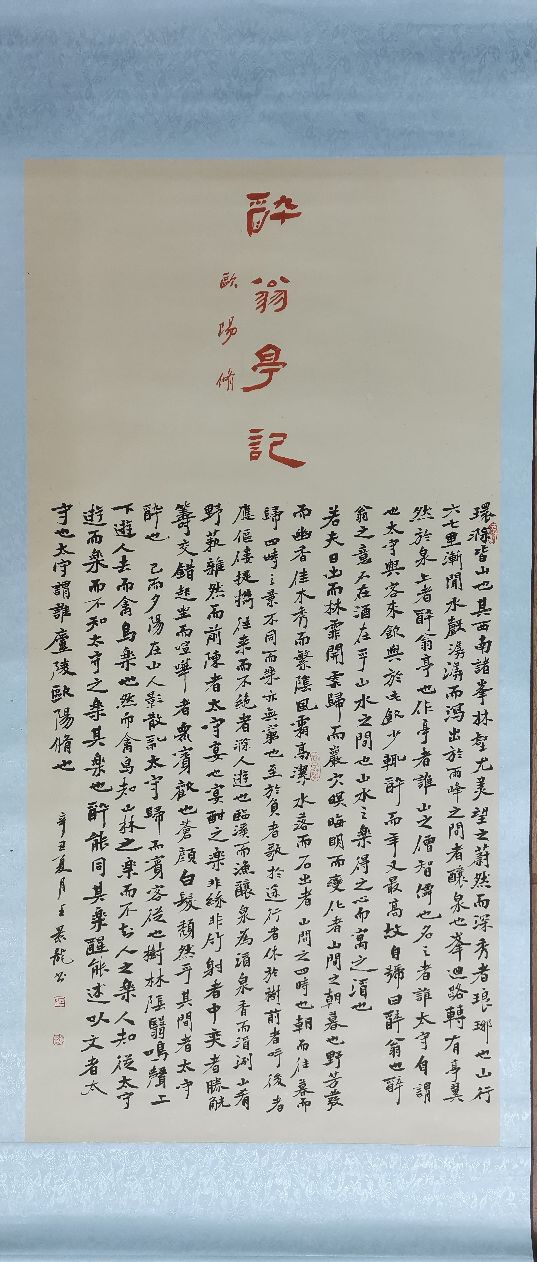 醉翁亭記
歐陽脩
環滁皆山也其西南諸峯林壑尤美望之蔚然而深秀者琅琊也山行
六七里漸聞水聲潺潺而瀉出於兩峰之間者釀泉也峯迴路轉有亭翼
然於泉上者醉翁亭也作亭者誰山之僧智僊也名之者誰太守自謂
也太守與客來飲與於此飲少輒醉而年又最高故自號曰醉翁也醉
翁之意不在酒在乎山水之間也山水之樂得之心而寓之酒也
若夫日出而林霏開雲歸而巖穴暝晦明而變化者山間之朝暮也野芳發
而幽香佳木秀而繁陰風霜高潔水落而石出者山間之四時也朝而往暮而
歸四時之景不同而樂亦無窮也至於負者歌於途行者休於樹前者呼後者
應傴僂提攜往來而不絕者滁人遊也臨溪而漁釀泉為酒泉香而酒洌山肴
野蔌雜然而前陳者太守宴也宴酣之樂非絲非竹射者中奕者勝觥
籌交錯起坐而喧嘩者衆賓歡也蒼顏白髮頹然乎其間者太守
醉也已而夕陽在山人影散亂太守歸而賓客從也樹林陰翳鳴聲上
下遊人去而禽鳥樂也然而禽鳥知山林之樂而不知人之樂人知從太守
遊而樂而不知太守之樂其樂也醉能同其樂醒能述以文者太
守也太守謂誰廬陵歐陽脩也
辛丑夏月王景龍